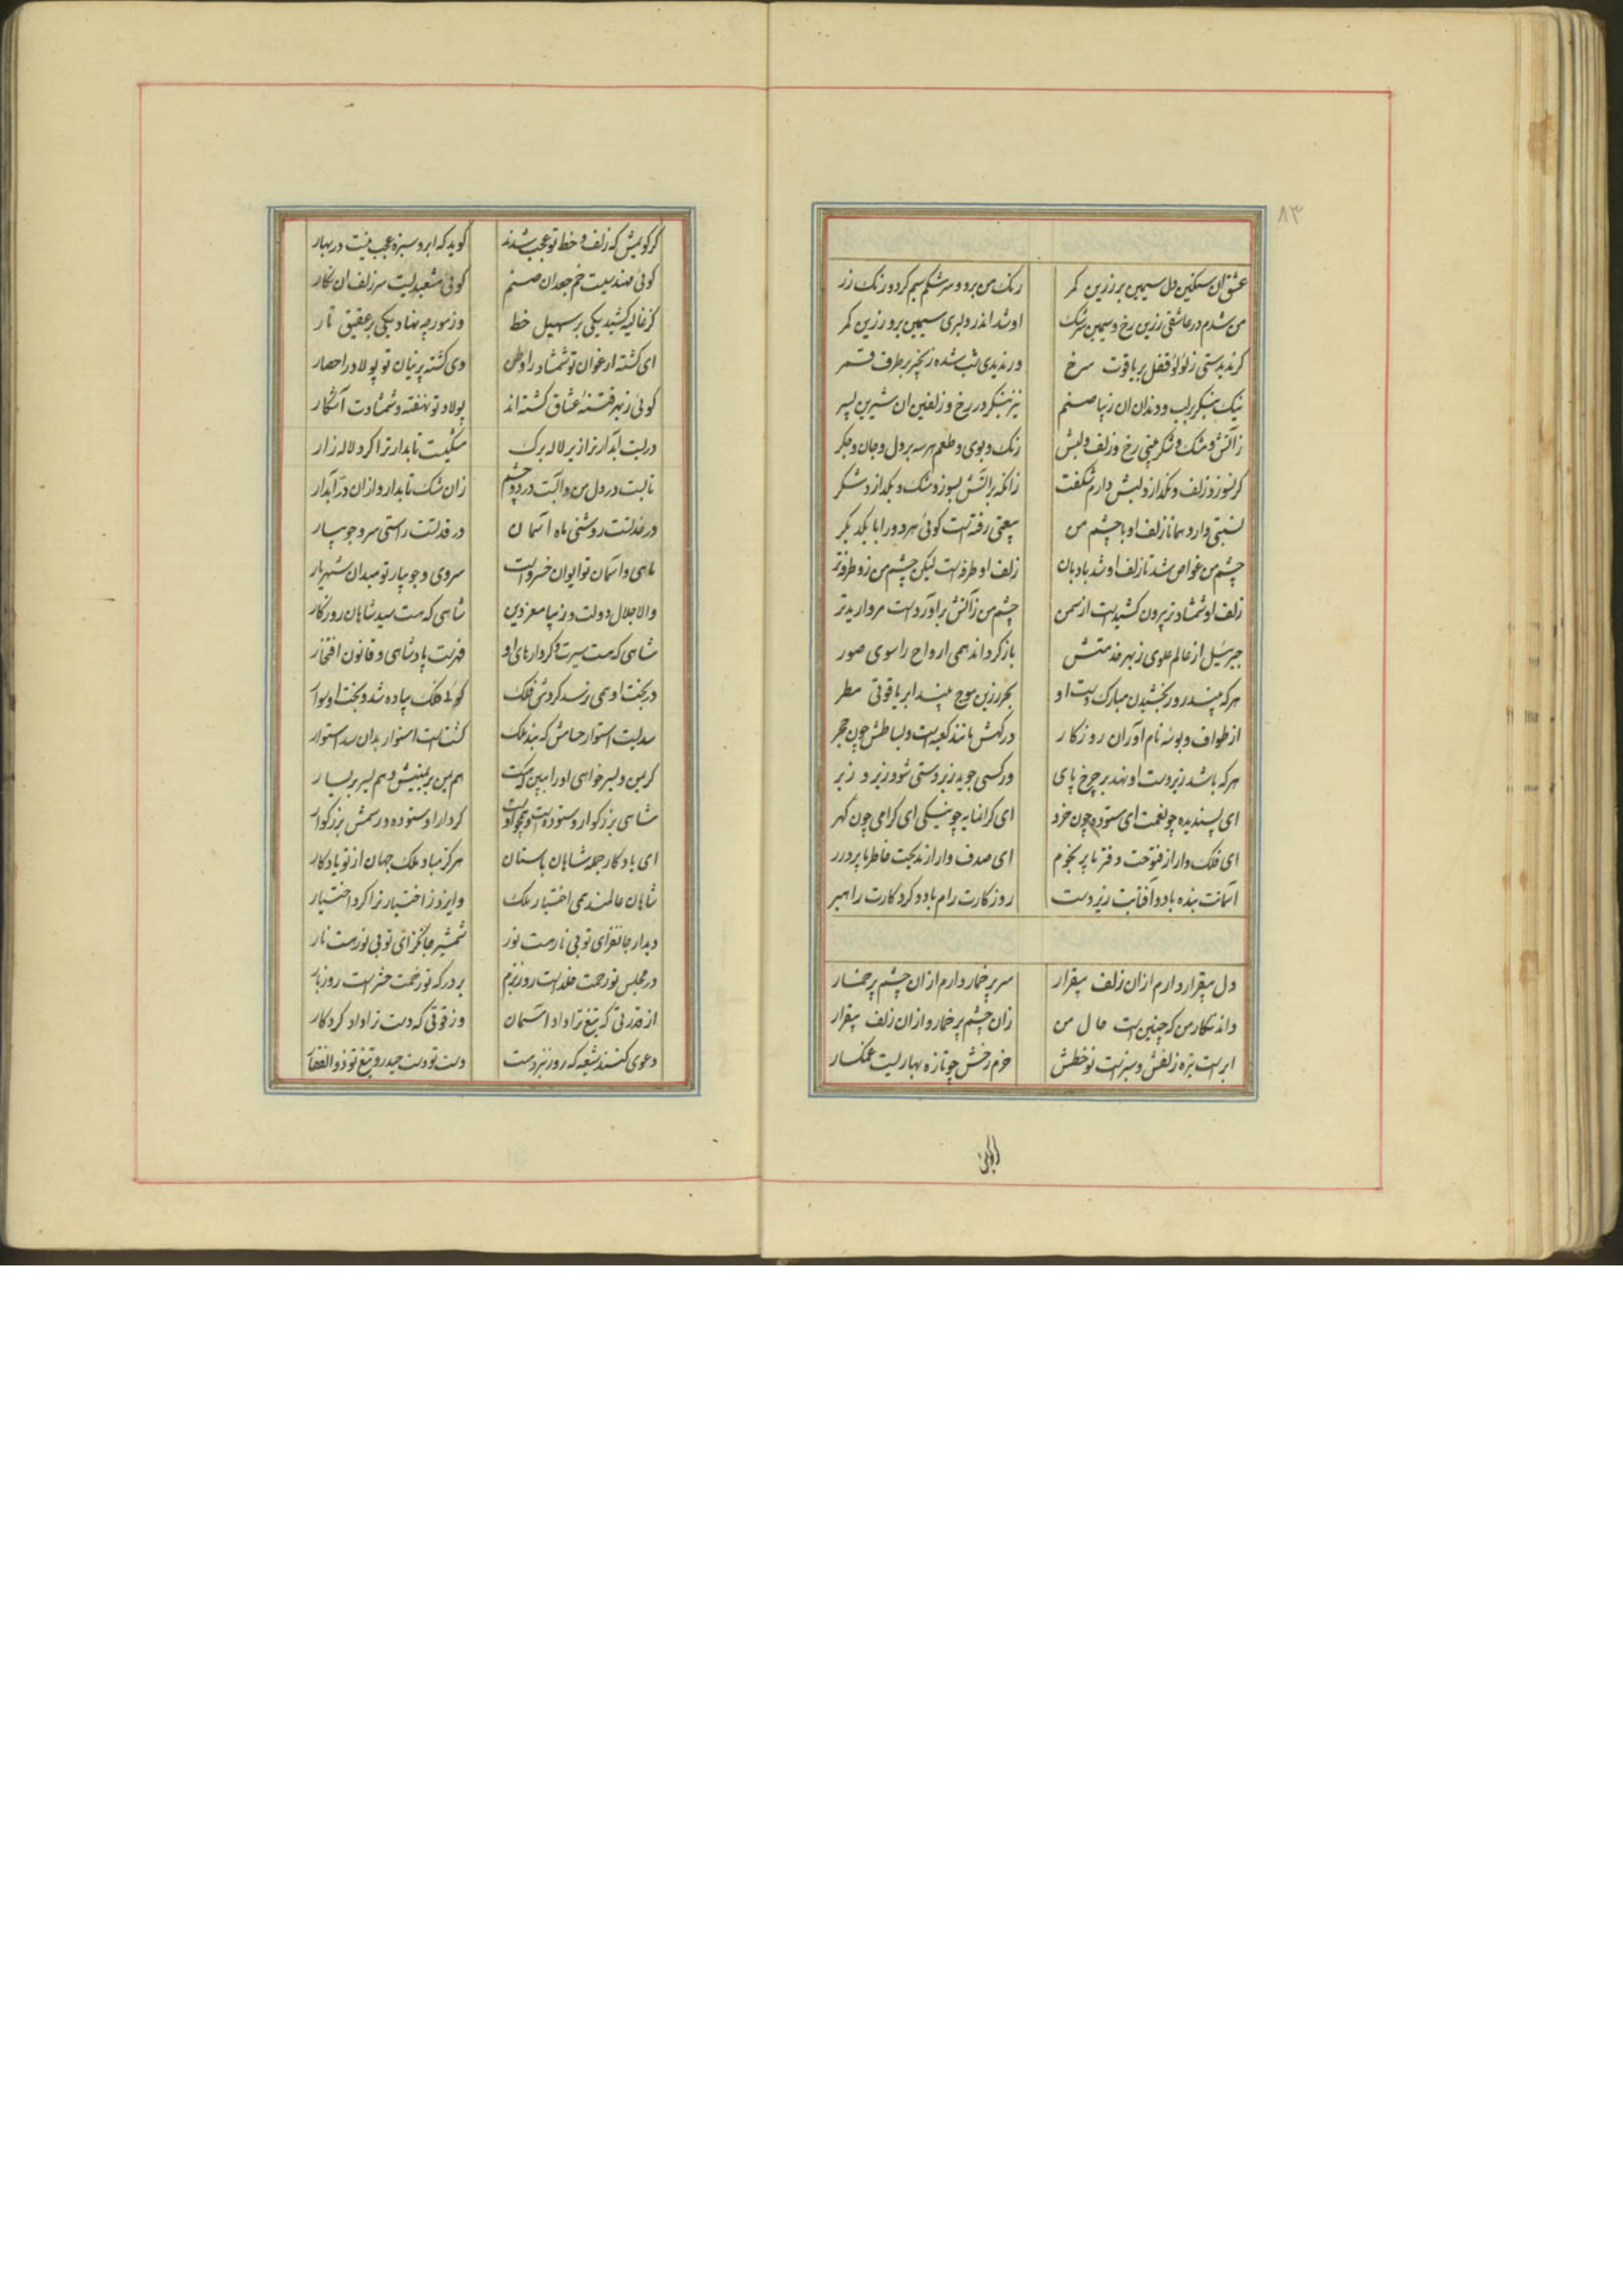 ٨٣
عشق آن سنگین دل سیمین بر زرین کمر رنک من برد و سرشکم سیم کرد و رنک زر
من شدم در عاشقی زرین رخ و سیمین سرشک او شد اندر دلبری سیمین بر و زرین کمر
کر ندیدستی ز لؤلؤ قفل بر یاقوت سرخ ور ندیدی شب شده زنجیر بر طرف قمر
نیک بنکر بر لب و دندان آن زیبا صنم نیز بنکر در رخ و زلفین آن شیرین پسر
ز آتش و مشک و شکر بینی رخ و زلف و لبش رنک و بوی و طعم هر سه بر دل و جان و جکر
کر نسوزد زلف و نکدازد لبش دارم شکفت زانکه بر آتش بسوزد مشک و بکدازد شکر
نسبتی دارد همانا زلف او با چشم من بیعتی رفته است کوئی هر دو را با یکدیکر
چشم من غواص شد تا زلف او شد بادبان زلف او طرفه است لیکن چشم من زو طرفه تر
زلف او شمشاد تر بیرون کشیدست از سمن چشم من ز آتش برآوردست مروارید تر
جبرئیل از عالم علوی ز بهر خدمتش باز کرداند همی ارواح را سوی صور
هر که بیند روز بخشیدن مبارک دست او بحر زرین موج بیند ابر یاقوتی مطر
از طواف و بوسه نام آوران روزکار درکهش مانند کعبه است و بساطش چون حجر
هر که باشد زیردست او نهد بر چرخ پای ور کسی جوید زبردستی شود زیر و زبر
ای پسندیده چو نعمت ای ستوده چون خرد ای کرانمایه چو نیکی ای کرامی چون کهر
ای فلک وار از فتوحت دفترها پر نجوم ای صدف وار از مدیحت خاطرها پر درر
آسمانت بنده باد و آفتابت زیردست روزکارت رام باد و کردکارت راهبر
دل بیقرار دارم از آن زلف بیقرار سر پر خمار دارم از آن چشم پر خمار
داند نکار من که چنین است حال من زان چشم پر خمار و از آن زلف بیقرار
ابر است تیره زلفش و سبزه است نو خطش خرم رخش چو تازه بهاریست غمکسار
کر کویمش که زلف و خط تو عجب شدند کوید که ابر و سبزه عجب نیست در بهار
کوئی مهندسیست خم جعد آن صنم کوئی مشعبدیست سر زلف آن نکار
کز غالیه کشید یکی بر سهیل خط وز مورچه نهاد یکی بر عقیق تار
ای کشته ارغوان تو شمشاد را وطن وی کشته پرنیان تو پولاد را حصار
کوئی ز بهر فتنه عشاق کشته اند پولاد تو نهفته و شمشادت آشکار
در لبت آبدار ترا زیر لاله برک مشکیت تابدار ترا کرد لاله زار
تابست در دل من و آبست در دو چشم زان مشک تابدار و از آن در آبدار
در خد تست روشنی ماه آسمان در قد تست راستی سرو جویبار
ماهی و آسمان تو ایوان خسرو است سروی و جویبار تو میدان شهریار
والا جلال دولت و زیبا معز دین شاهی که هست سید شاهان روزکار
شاهی که هست سیرت و کردارهای او فهرست پادشاهی و قانون افتخار
در بخت او همی نرسد کردش فلک کوئی فلک پیاده شد و بخت او سوار
سدیست استوار حسامش که بند ملک کشت است استوار بدان سد استوار
کر یمن و یسر خواهی او را ببین که هست هم یمن بر یمینش و هم یسر بر یسار
شاهی بزرکوار و ستوده است و کردار او ستوده و رسمش بزرکوار
ای یادکار جمله شاهان باستان هرکز مباد ملک جهان از تو یادکار
شاهان عالمند همی اختیار ملک وایزد ز اختیار ترا کرد اختیار
دیدار جانفزای تو بی نار هست نور شمشیر جانکزای تو بی نور هست نار
در مجلس تو رحمت خلد است روز بزم بر درکه تو زحمت حشر است روز بار
از قدرتی که تیغ ترا داد آسمان وز قوتی که دست ترا داد کردکار
دعوی کنند شیعه که روز نبرد هست دست تو دست حیدر و تیغ تو ذوالفقار